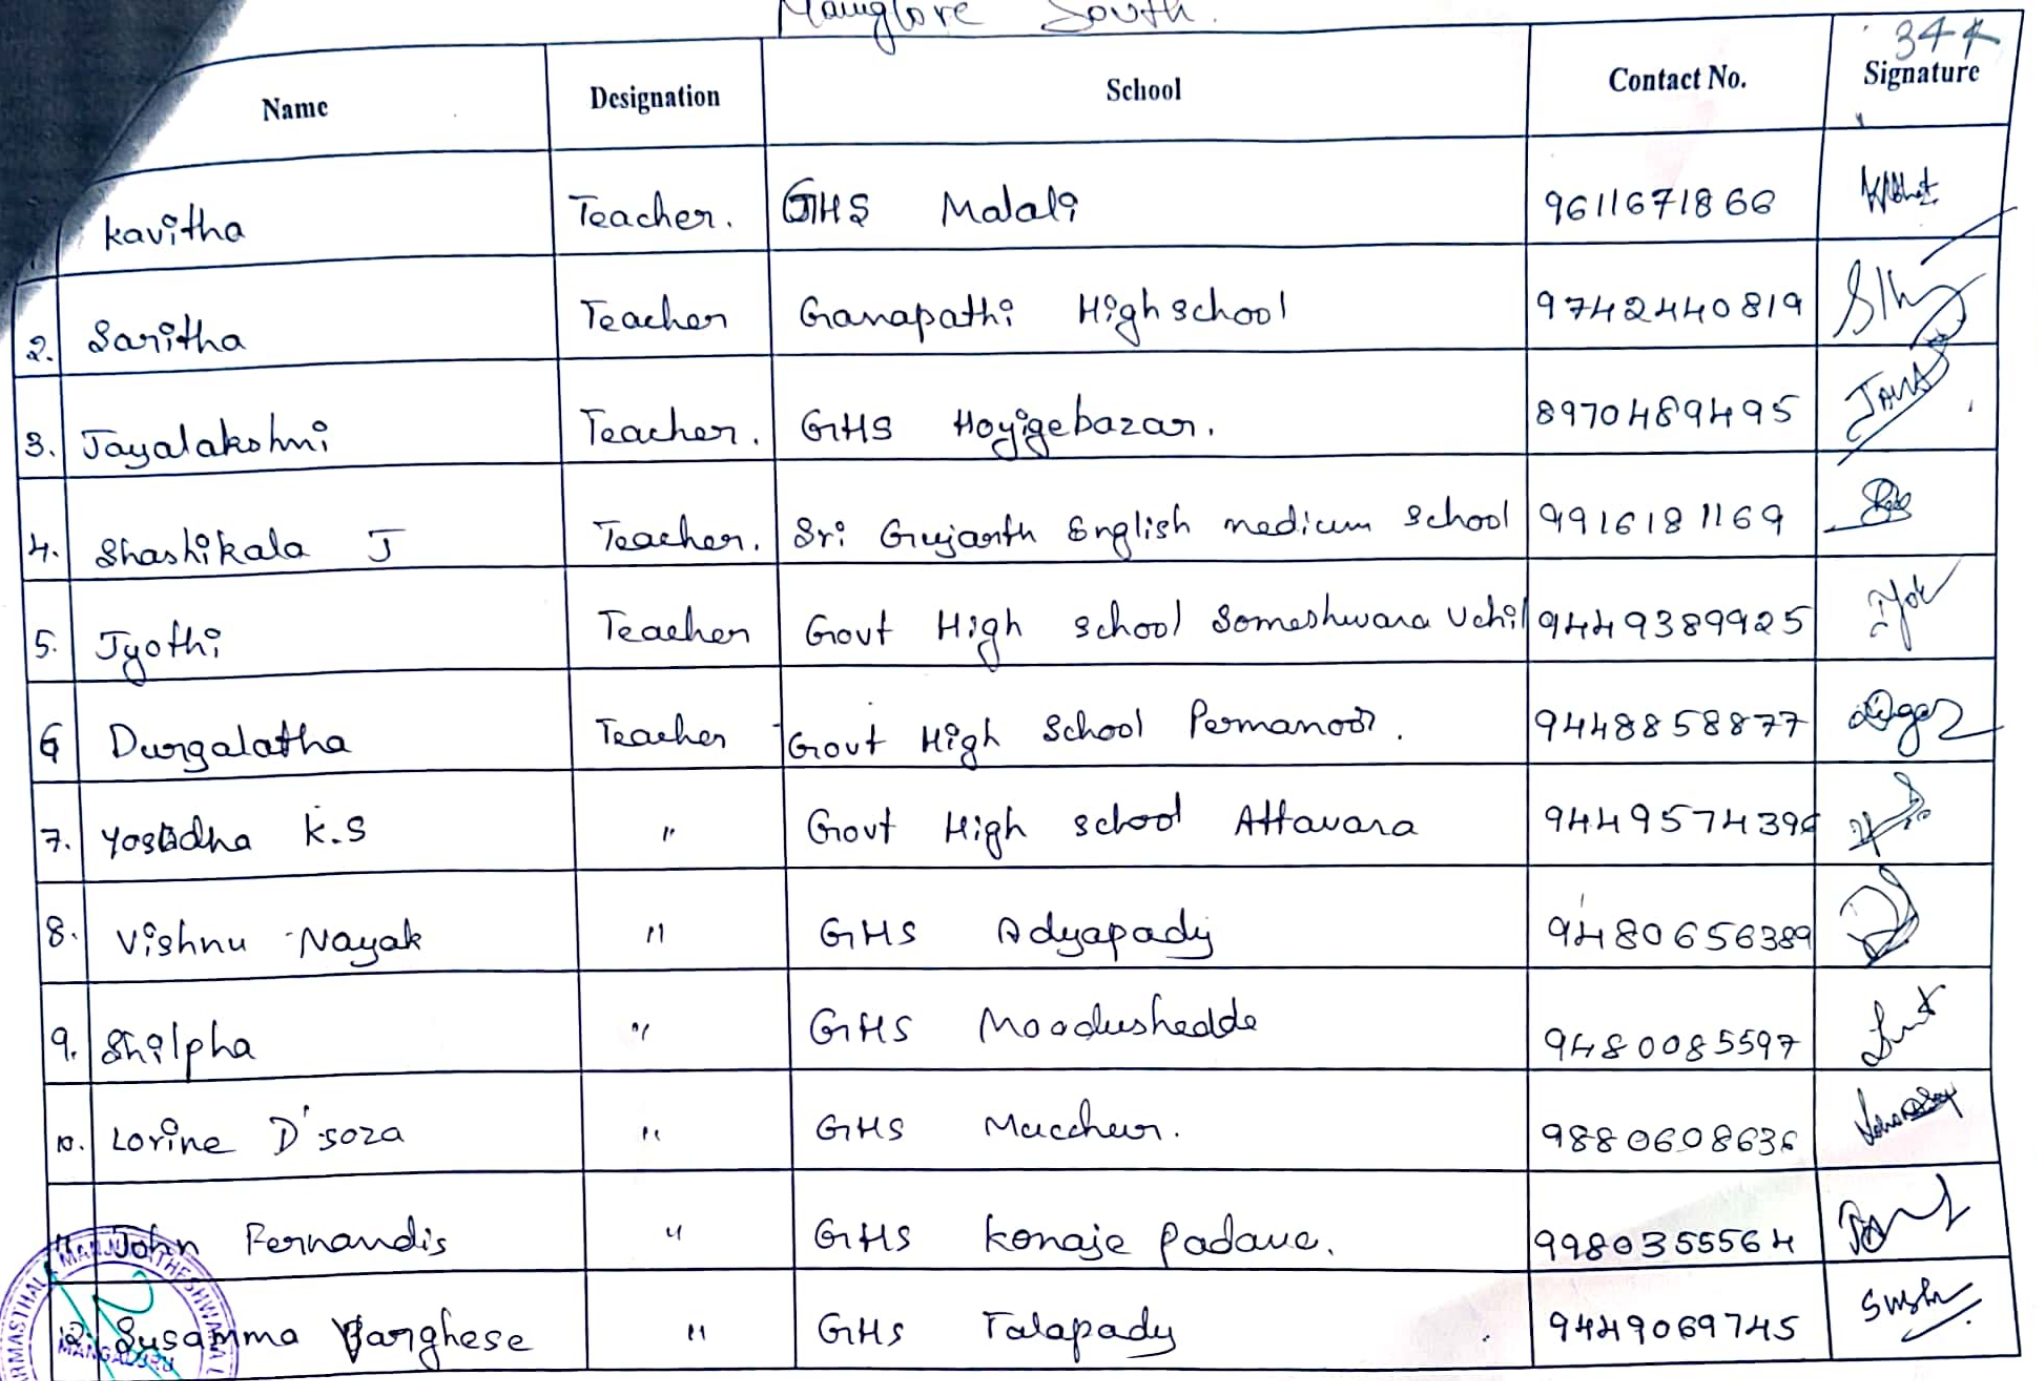 Manglore South.
344
Name Designation School Contact No. Signature
kavitha Teacher. GHS Malali 9611671866
2. Saritha Teacher Ganapathi High school 9742440819
3. Jayalakshmi Teacher. GHS Hoyigebazar. 8970489495
4. Shashikala J Teacher. Sri Gujanth English medium school 9916181169
5. Jyothi Teacher Govt High school Someshwara Uchil 9449389925
6 Durgalatha Teacher Govt High School Permanoor. 9448858877
7. Yoshodha K.S " Govt High school Attavara 9449574396
8. Vishnu Nayak " GHS Adyapady 9480656389
9. Shilpha " GHS Moodushedde 9480085597
10. Lorine D'soza " GHS Mucchur. 9880608636
11. John Fernandis " GHS konaje Padave. 9980355564
12. Susamma Varghese " GHS Talapady 9449069745